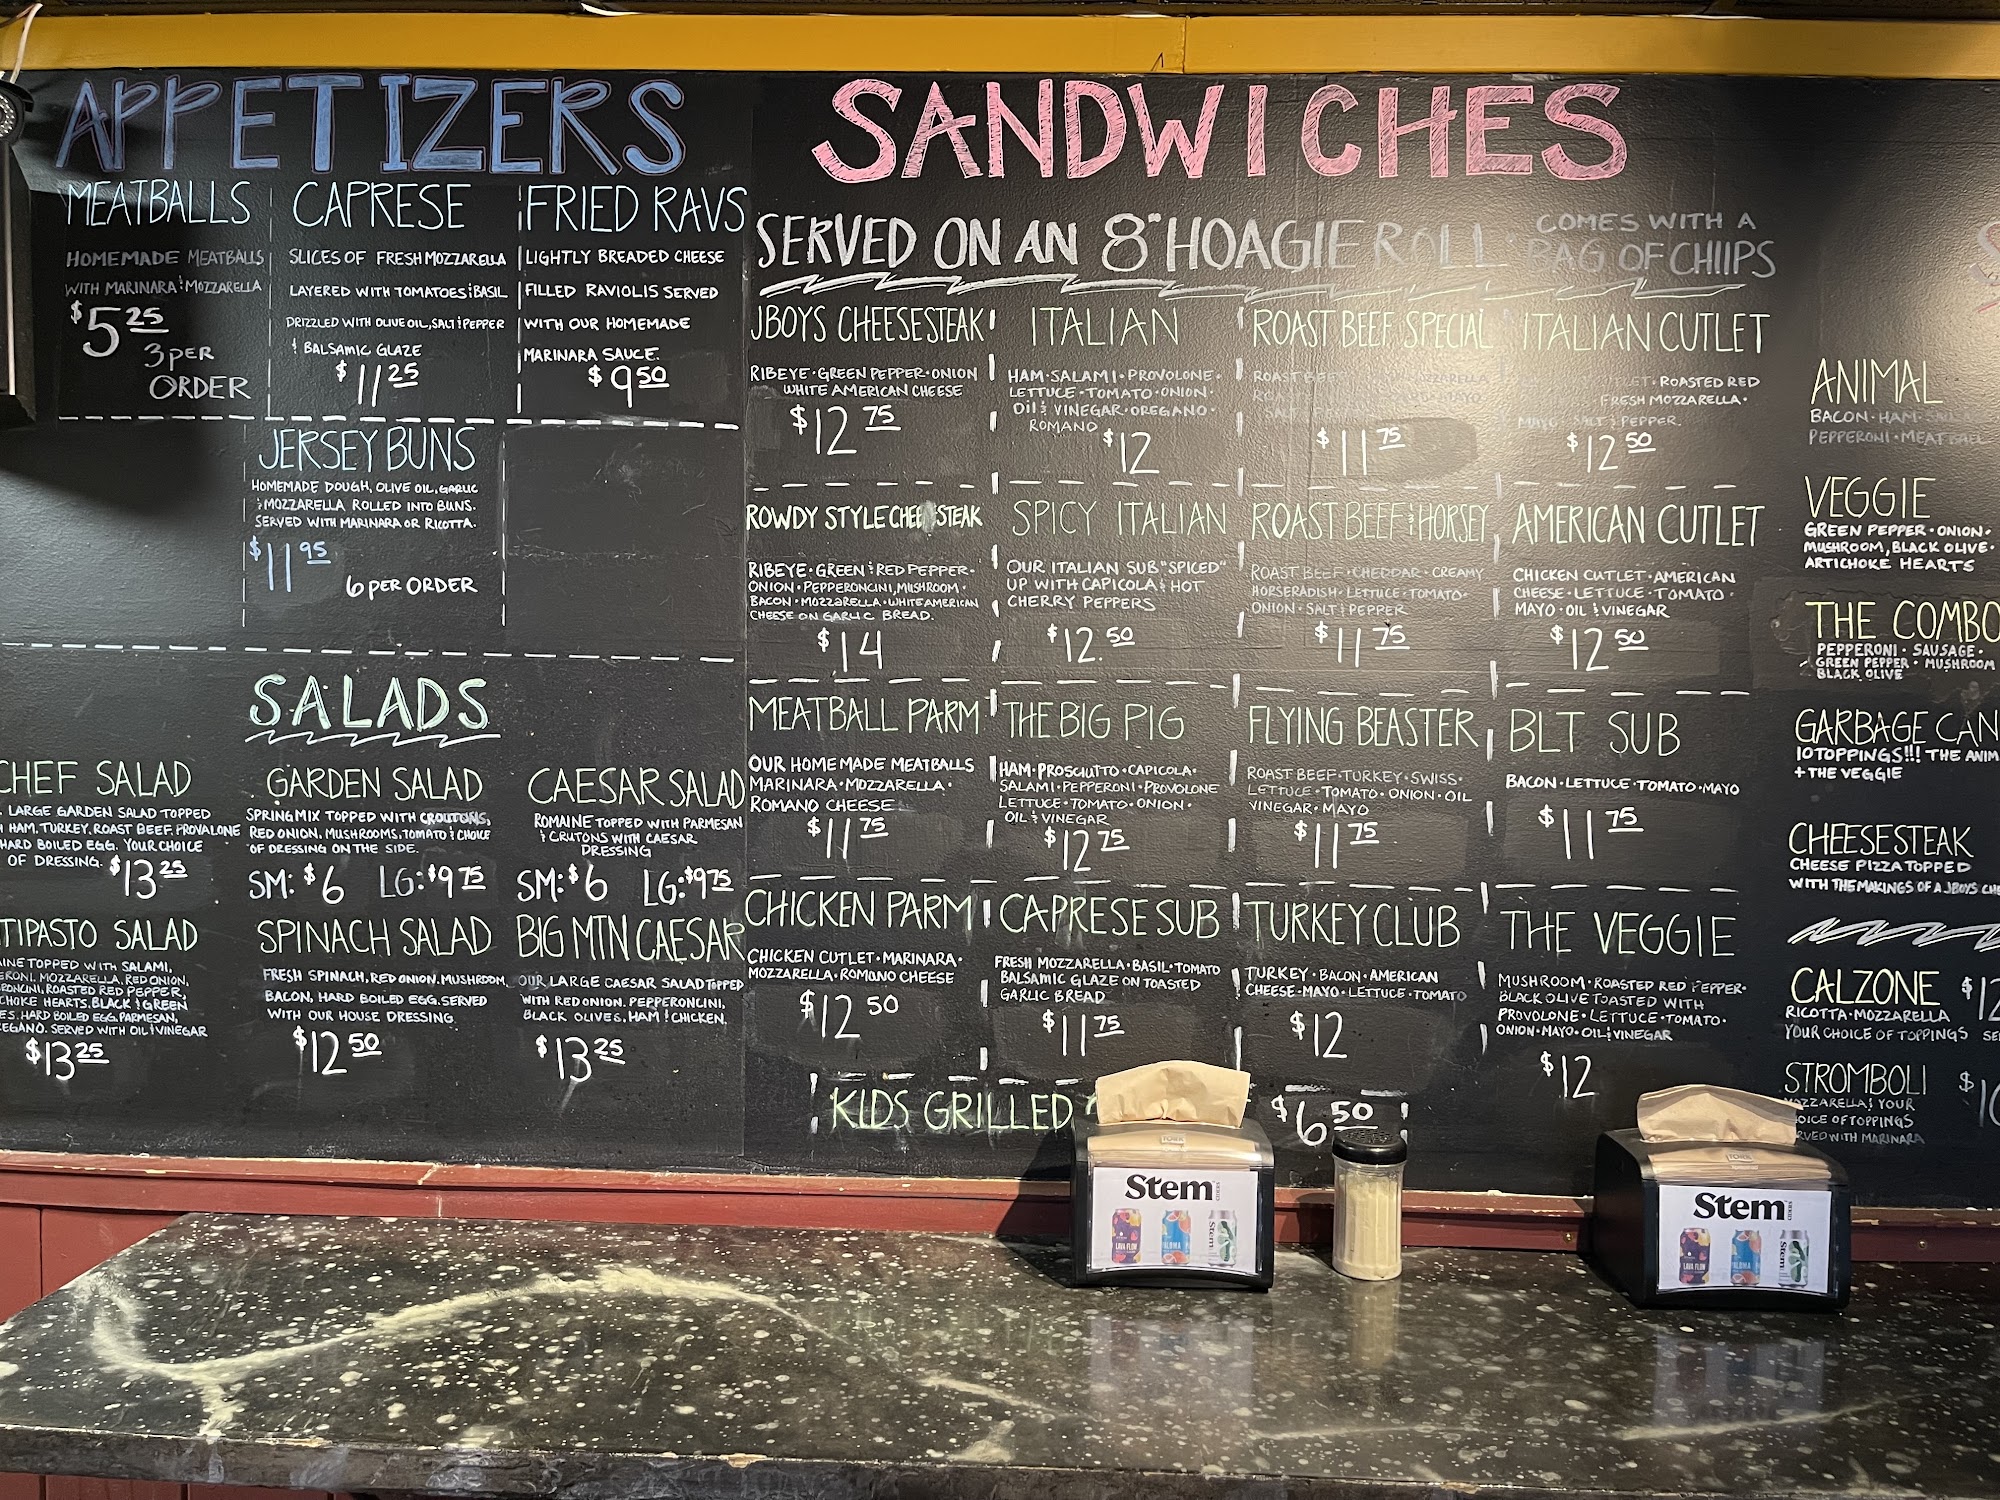 APPETIZERS
MEATBALLS
HOMEMADE MEATBALLS
WITH MARINARA & MOZZARELLA
$5 25
3 PER
ORDER
CAPRESE
SLICES OF FRESH MOZZARELLA
LAYERED WITH TOMATOES & BASIL
DRIZZLED WITH OLIVE OIL, SALT & PEPPER
& BALSAMIC GLAZE
$11 25
FRIED RAVS
LIGHTLY BREADED CHEESE
FILLED RAVIOLIS SERVED
WITH OUR HOMEMADE
MARINARA SAUCE.
$9 50
JERSEY BUNS
HOMEMADE DOUGH, OLIVE OIL, GARLIC
& MOZZARELLA ROLLED INTO BUNS.
SERVED WITH MARINARA OR RICOTTA.
$11 95
6 PER ORDER
SALADS
CHEF SALAD
LARGE GARDEN SALAD TOPPED
HAM, TURKEY, ROAST BEEF, PROVALONE
HARD BOILED EGG. YOUR CHOICE
OF DRESSING. $13 25
GARDEN SALAD
SPRING MIX TOPPED WITH CROUTONS,
RED ONION, MUSHROOMS, TOMATO & CHOICE
OF DRESSING ON THE SIDE.
SM: $6 LG: $9 75
CAESAR SALAD
ROMAINE TOPPED WITH PARMESAN
& CRUTONS WITH CAESAR
DRESSING
SM: $6 LG: $9 75
TIPASTO SALAD
TOPPED WITH SALAMI,
MOZZARELLA, RED ONION,
ROASTED RED PEPPER,
HEARTS, BLACK & GREEN
HARD BOILED EGG, PARMESAN,
SERVED WITH OIL & VINEGAR
$13 25
SPINACH SALAD
FRESH SPINACH, RED ONION, MUSHROOM,
BACON, HARD BOILED EGG. SERVED
WITH OUR HOUSE DRESSING.
$12 50
BIG MTN CAESAR
OUR LARGE CAESAR SALAD TOPPED
WITH RED ONION, PEPPERONCINI,
BLACK OLIVES, HAM & CHICKEN.
$13 25
SANDWICHES
SERVED ON AN 8" HOAGIE ROLL
COMES WITH A
BAG OF CHIIPS
JBOYS CHEESESTEAK
RIBEYE • GREEN PEPPER • ONION
WHITE AMERICAN CHEESE
$12 75
ITALIAN
HAM • SALAMI • PROVOLONE •
LETTUCE • TOMATO • ONION •
OIL & VINEGAR • OREGANO •
ROMANO
$12
ROAST BEEF SPECIAL
ROAST BEEF
$11 75
ITALIAN CUTLET
• ROASTED RED
FRESH MOZZARELLA •
MAYO • SALT & PEPPER.
$12 50
ROWDY STYLE CHEESESTEAK
RIBEYE • GREEN & RED PEPPER •
ONION • PEPPERONCINI, MUSHROOM •
BACON • MOZZARELLA • WHITE AMERICAN
CHEESE ON GARLIC BREAD.
$14
SPICY ITALIAN
OUR ITALIAN SUB "SPICED"
UP WITH CAPICOLA & HOT
CHERRY PEPPERS
$12.50
ROAST BEEF & HORSEY
ROAST BEEF • CHEDDAR • CREAMY
HORSERADISH • LETTUCE • TOMATO •
ONION • SALT & PEPPER
$11 75
AMERICAN CUTLET
CHICKEN CUTLET • AMERICAN
CHEESE • LETTUCE • TOMATO •
MAYO • OIL & VINEGAR
$12 50
MEATBALL PARM
OUR HOMEMADE MEATBALLS
MARINARA • MOZZARELLA •
ROMANO CHEESE
$11 75
THE BIG PIG
HAM • PROSCIUTTO • CAPICOLA •
SALAMI • PEPPERONI • PROVOLONE
LETTUCE • TOMATO • ONION •
OIL & VINEGAR
$12 75
FLYING BEASTER
ROAST BEEF • TURKEY • SWISS •
LETTUCE • TOMATO • ONION • OIL
VINEGAR • MAYO
$11 75
BLT SUB
BACON • LETTUCE • TOMATO • MAYO
$11 75
CHICKEN PARM
CHICKEN CUTLET • MARINARA •
MOZZARELLA • ROMANO CHEESE
$12 50
CAPRESE SUB
FRESH MOZZARELLA • BASIL • TOMATO
BALSAMIC GLAZE ON TOASTED
GARLIC BREAD
$11 75
TURKEY CLUB
TURKEY • BACON • AMERICAN
CHEESE • MAYO • LETTUCE • TOMATO
$12
THE VEGGIE
MUSHROOM • ROASTED RED PEPPER •
BLACK OLIVE TOASTED WITH
PROVOLONE • LETTUCE • TOMATO •
ONION • MAYO • OIL & VINEGAR
$12
KIDS GRILLED
$6 50
ANIMAL
BACON • HAM
PEPPERONI • MEATBALL
VEGGIE
GREEN PEPPER • ONION •
MUSHROOM, BLACK OLIVE •
ARTICHOKE HEARTS
THE COMBO
PEPPERONI • SAUSAGE •
GREEN PEPPER • MUSHROOM
BLACK OLIVE
GARBAGE CAN
10 TOPPINGS!!! THE ANIM
+ THE VEGGIE
CHEESESTEAK
CHEESE PIZZA TOPPED
WITH THE MAKINGS OF A JBOYS CHE
CALZONE
RICOTTA • MOZZARELLA
YOUR CHOICE OF TOPPINGS
STROMBOLI
MOZZARELLA & YOUR
CHOICE OF TOPPINGS
SERVED WITH MARINARA
TORK
Stem
CIDERS
LAVA FLOW
PALOMA
Stem
TORK
Stem
CIDERS
LAVA FLOW
PALOMA
Stem